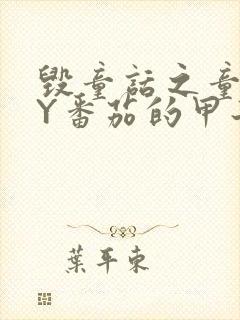 毁童话之童
Y番茄的甲
葉平東